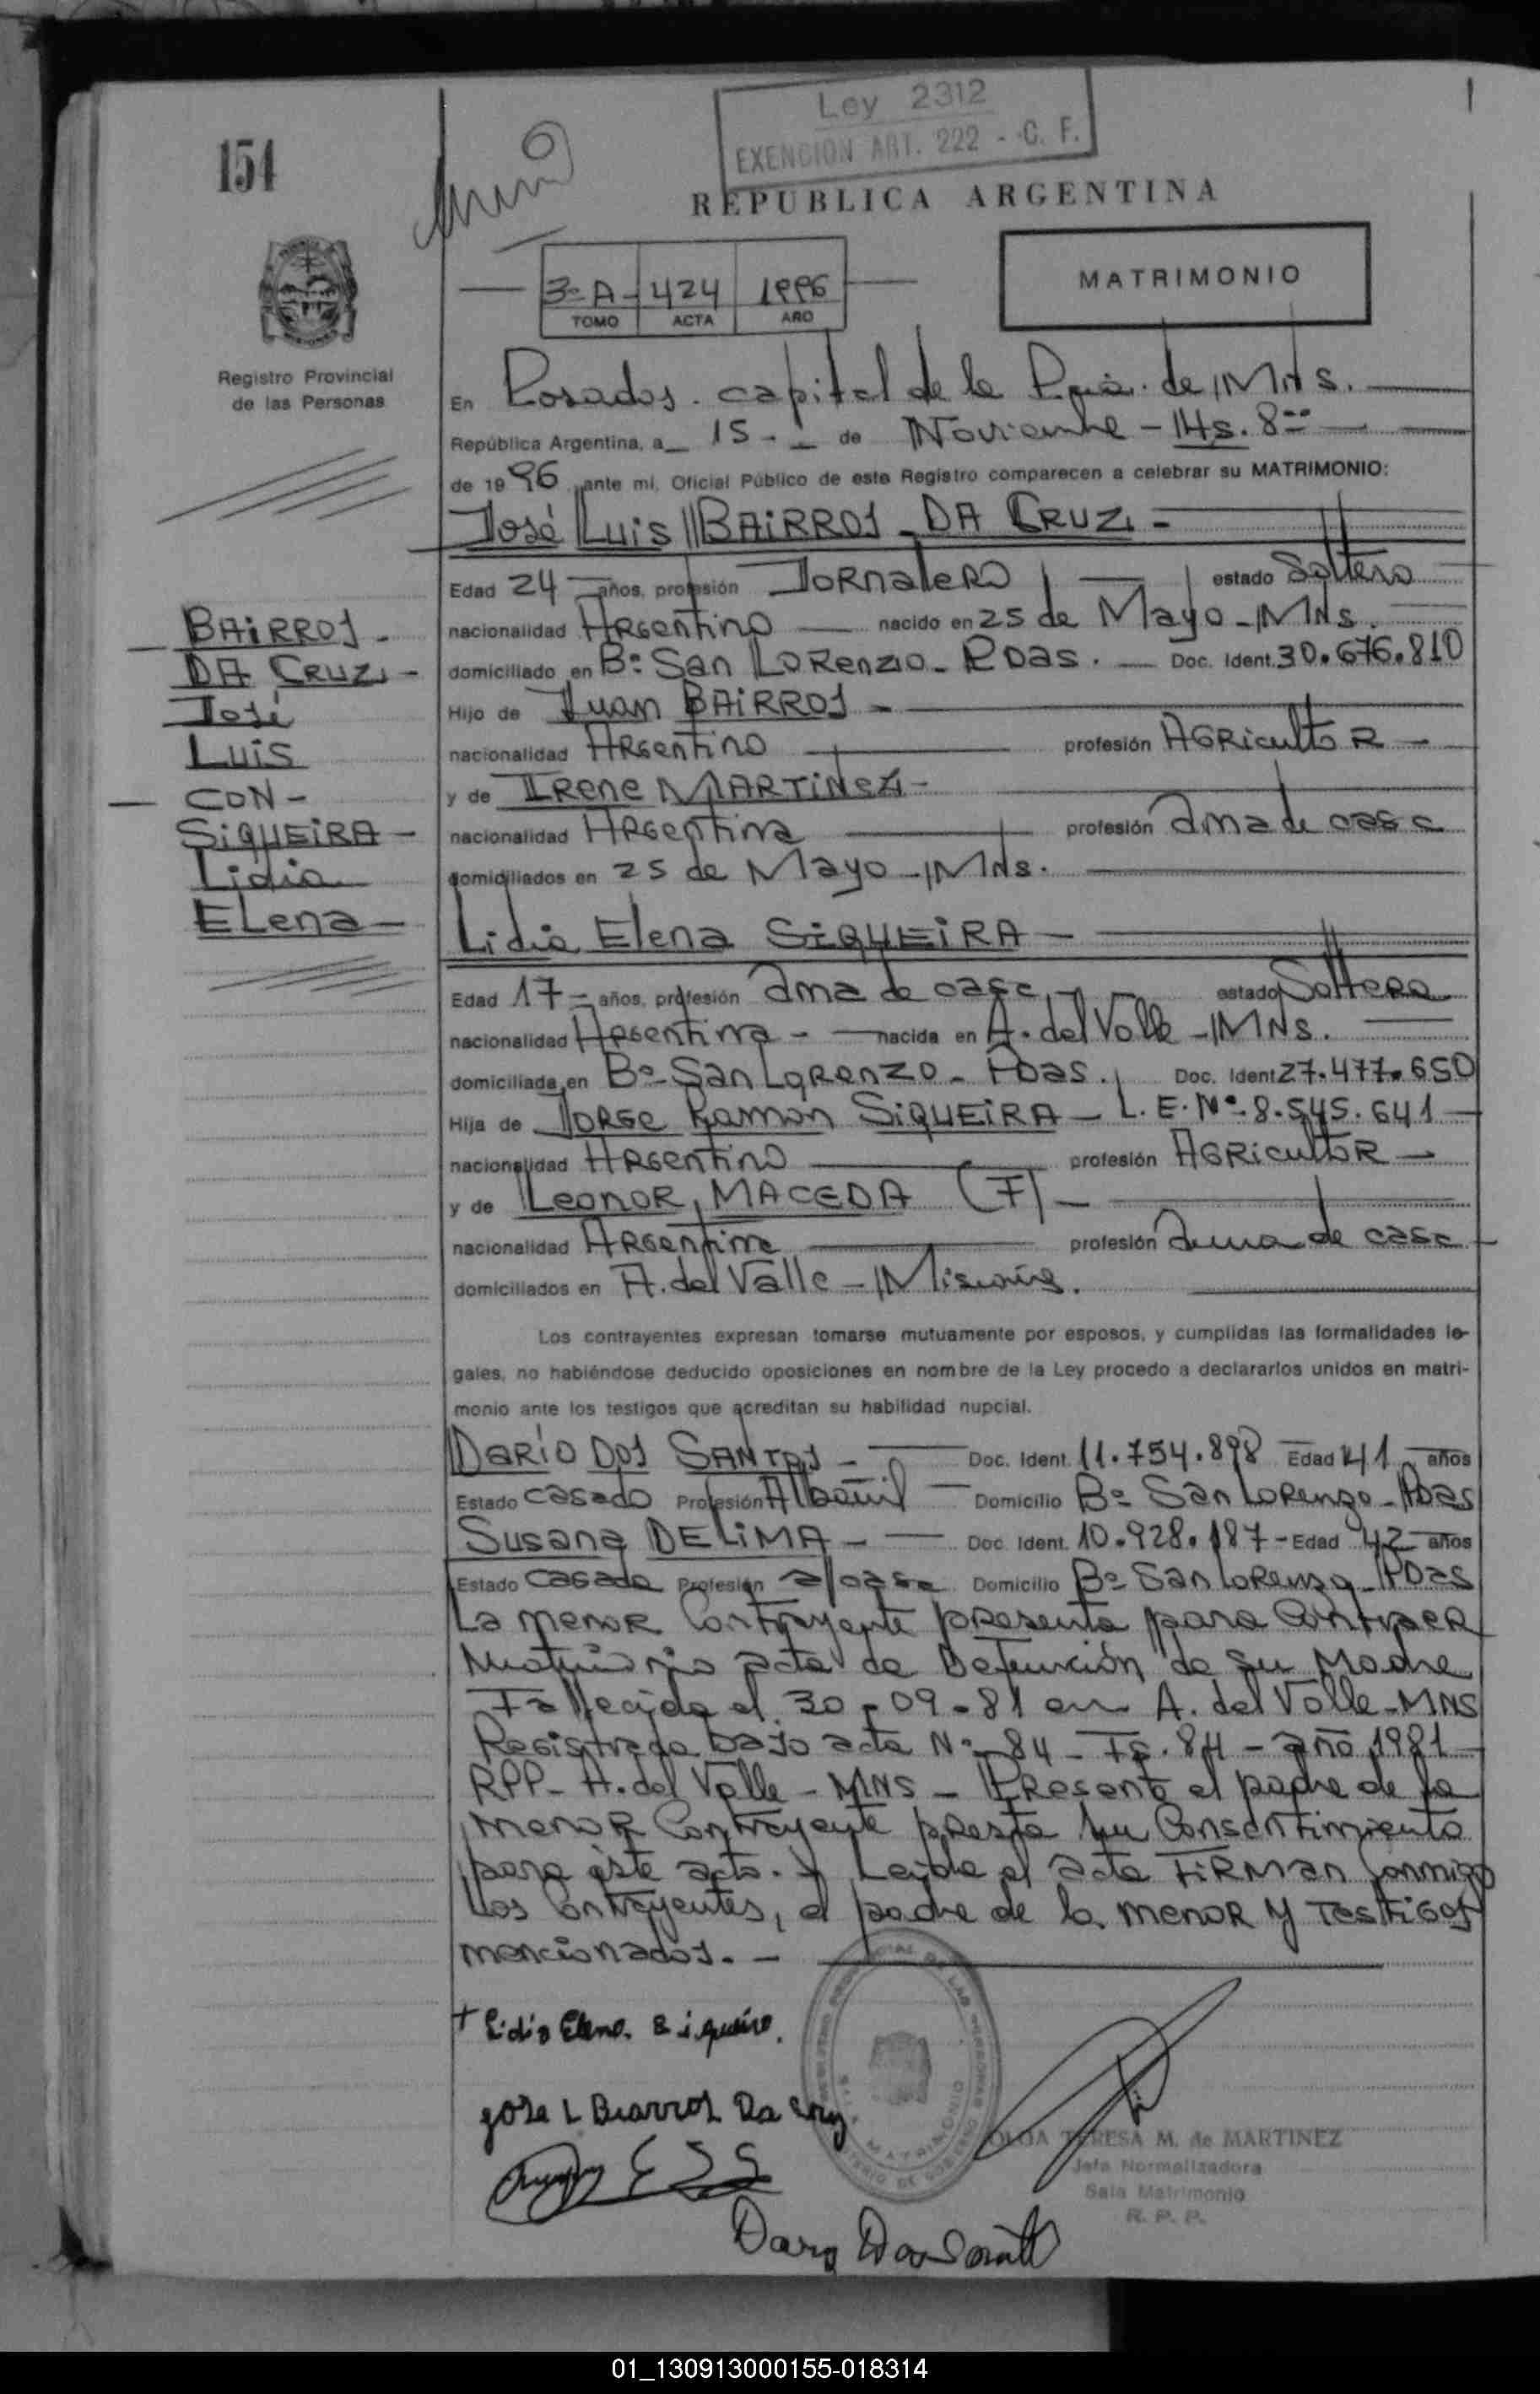 Ley 2312
EXENCION ART. 222 - C. F.
154
REPUBLICA ARGENTINA
3º A - 424 1996
TOMO ACTA AÑO
MATRIMONIO
Registro Provincial
de las Personas
En Posadas. capital de la Pcia. de MNS.
República Argentina, a 15 - de Noviembre - Hs. 8
de 1996 ante mí, Oficial Público de este Registro comparecen a celebrar su MATRIMONIO:
José Luis BAIRROS DA CRUZ -
Edad 24 años, profesión JORNALERO estado Soltero
nacionalidad Argentino nacido en 25 de Mayo - MNS.
domiciliado en Bº San LORENZO - PDAS. Doc. Ident. 30.676.810
Hijo de Juan BAIRROS -
nacionalidad Argentino profesión AGRICULTOR -
y de IRENE MARTINEZ -
nacionalidad Argentina profesión ama de casa
domiciliados en 25 de Mayo - MNS.
BAIRROS -
DA CRUZ -
José
LUIS
CON -
SIQUEIRA -
Lidia
ELENA -
Lidia Elena SIQUEIRA -
Edad 17 - años, profesión ama de casa estado Soltera
nacionalidad Argentina - nacida en A. del Valle - MNS.
domiciliada en Bº San LORENZO - PDAS. Doc. Ident 27.477.650
Hija de JORGE Ramon SIQUEIRA - L. E. Nº 8.545.641
nacionalidad Argentino profesión AGRICULTOR -
y de LEONOR MACEDA (F) -
nacionalidad Argentina profesión Ama de casa
domiciliados en A. del Valle - Misiones.
Los contrayentes expresan tomarse mutuamente por esposos, y cumplidas las formalidades le-
gales, no habiéndose deducido oposiciones en nombre de la Ley procedo a declararlos unidos en matri-
monio ante los testigos que acreditan su habilidad nupcial.
DARÍO DOS SANTOS - Doc. Ident. 11.754.898 Edad 41 años
Estado casado Profesión Albañil Domicilio Bº San LORENZO - PDAS
Susana DELIMA - Doc. Ident. 10.928.187 - Edad 42 años
Estado casada Profesión a/casa Domicilio Bº San LORENZO - PDAS
La menor Contrayente presenta para Contraer
Matrimonio acta de Defunción de su Madre
Fallecida el 30-09-81 en A. del Valle - MNS
Registrada bajo acta Nº 84 - Fº. 84 - año 1981
RPP - A. del Valle - MNS - Presente el padre de la
menor Contrayente presta su Consentimiento
para éste acto. y Leída el acta FIRMAN Conmigo
los Contrayentes, el padre de la menor y Testigos
mencionados. -
+ Lidia Elena Siqueira.
Jose L Biarros Da Cruz
Dario Dos Santos
MATRIMONIO
OLGA TERESA M. de MARTINEZ
Jefa Normalizadora
Sala Matrimonio
R. P. P.
01_130913000155-018314